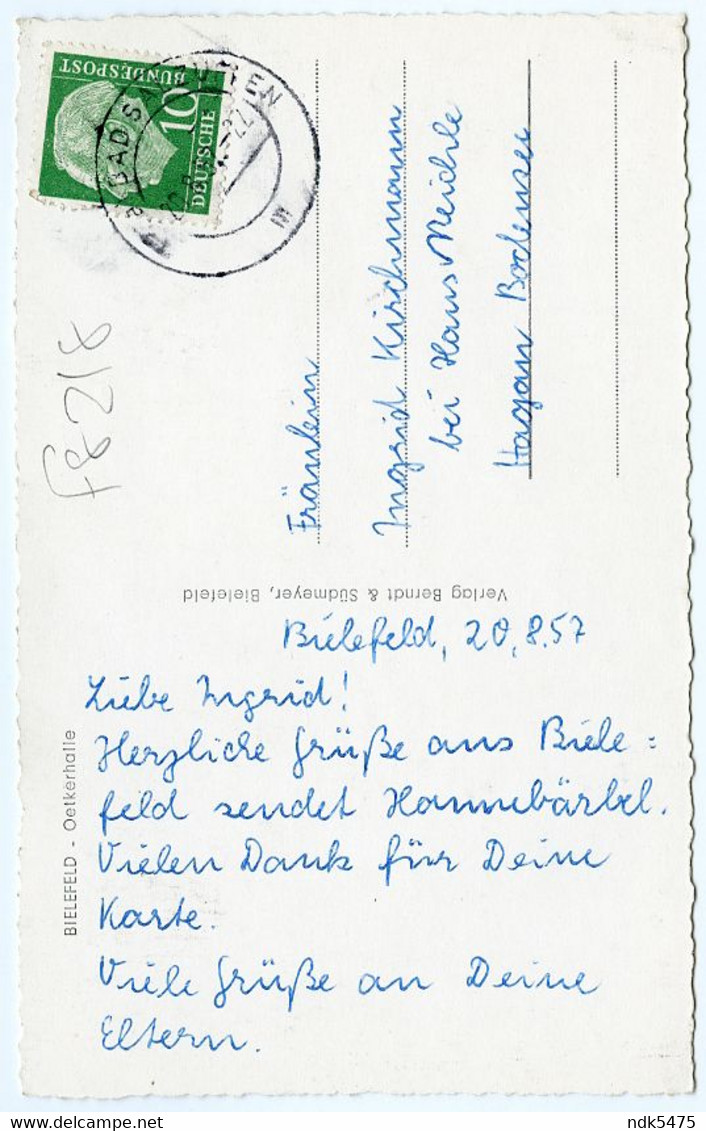 DEUTSCHE
BUNDESPOST
10
BAD SALZUFLEN
m
FE 218
Fräulein
Ingrid Kirchmann
bei Haus Reichle
Hagnau Bodensee
Verlag Berndt & Südmeyer, Bielefeld
BIELEFELD - Oetkerhalle
Bielefeld, 20.8.57
Liebe Ingrid!
Herzliche Grüße aus Biele=
feld sendet Hannebärbel.
Vielen Dank für Deine
Karte.
Viele Grüße an Deine
Eltern.
delcampe.net
ndk5475